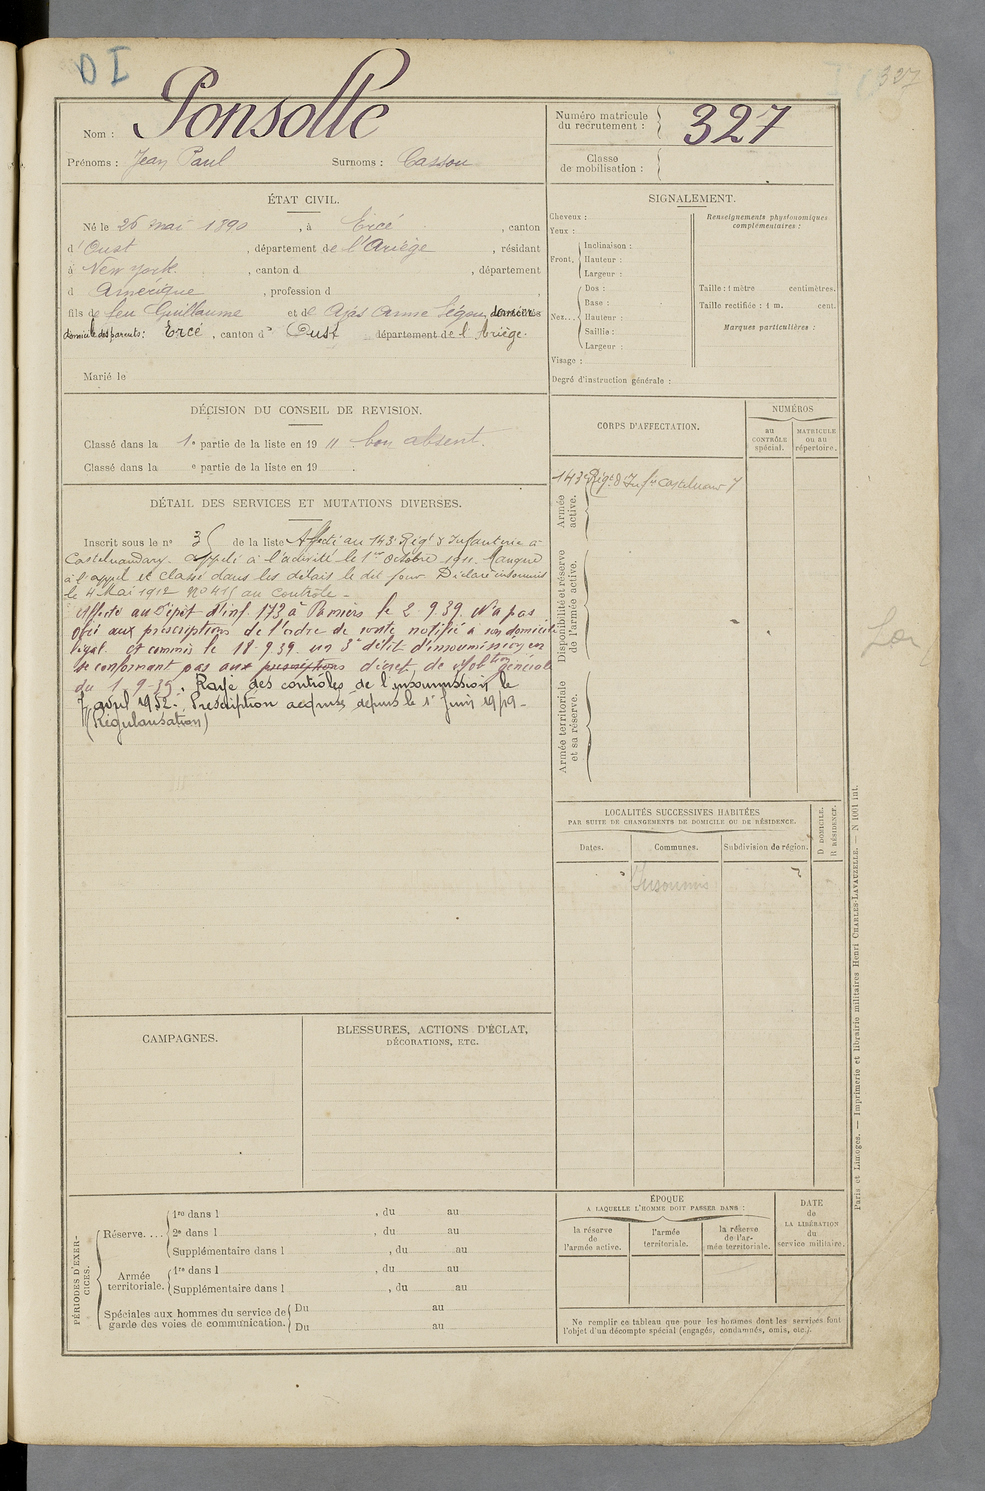 D I
327
Nom : Ponsolle
Prénoms : Jean Paul Surnoms : Cassou
Numéro matricule
du recrutement : 327
Classe
de mobilisation :
ÉTAT CIVIL.
Né le 26 mai 1890, à Ercé, canton
d'Oust, département de l'Ariège, résidant
à New York, canton d , département
d Amérique, profession d ,
fils de feu Guillaume et de Ajas Anne
domicile des parents : Ercé, canton d' Oust département de l'Ariège.
Marié le
SIGNALEMENT.
Cheveux :
Yeux :
Front. Inclinaison :
Hauteur :
Largeur :
Nez... Dos :
Base :
Hauteur :
Saillie :
Largeur :
Visage :
Renseignements physionomiques
complémentaires :
Taille : 1 mètre centimètres.
Taille rectifiée : 1 m. cent.
Marques particulières :
Degré d'instruction générale :
DÉCISION DU CONSEIL DE REVISION.
Classé dans la 1e partie de la liste en 1911 bon absent.
Classé dans la e partie de la liste en 19 .
DÉTAIL DES SERVICES ET MUTATIONS DIVERSES.
Inscrit sous le n° de la liste Affecté au 143e Régt d'Infanterie à
Castelnaudary. Appelé à l'activité le 1er Octobre 1911. Manque
à l'appel et classé dans les délais le dit jour. Déclaré insoumis
le 4 Mai 1912 N° 415 au contrôle -
Affecté au Dépôt d'inf. 173 à Pamiers le 2.9.39. N'a pas
obéi aux prescriptions de l'ordre de route notifié à son domicile
légal et commis le 18.9.39 un 3e délit d'insoumission en
se conformant pas aux prescriptions décret de Mobtion générale
du 1.9-39. Rayé des contrôles de l'insoumission le
7 avril 1952. Prescription acquise depuis le 1er Juin 1919 -
(Régularisation)
CORPS D'AFFECTATION.
NUMÉROS
au
CONTRÔLE
spécial.
MATRICULE
ou au
répertoire.
143e Régt d'Infie Castelnaudary
Armée
active.
Disponibilité et réserve
de l'armée active.
Armée territoriale
et sa réserve.
LOCALITÉS SUCCESSIVES HABITÉES
PAR SUITE DE CHANGEMENTS DE DOMICILE OU DE RÉSIDENCE.
Dates.
Communes.
Subdivision de région.
D DOMICILE.
R RÉSIDENCE.
Insoumis
CAMPAGNES.
BLESSURES, ACTIONS D'ÉCLAT,
DÉCORATIONS, ETC.
PÉRIODES D'EXER-
CICES.
Réserve.... 1re dans l , du au
2e dans l , du au
Supplémentaire dans l , du au
Armée
territoriale. 1re dans l , du au
Supplémentaire dans l , du au
Spéciales aux hommes du service de
garde des voies de communication. Du au
Du au
ÉPOQUE
A LAQUELLE L'HOMME DOIT PASSER DANS :
la réserve
de
l'armée active.
l'armée
territoriale.
la réserve
de l'ar-
mée territoriale.
DATE
de
LA LIBÉRATION
du
service militaire.
Ne remplir ce tableau que pour les hommes dont les services font
l'objet d'un décompte spécial (engagés, condamnés, omis, etc.).
Paris et Limoges. — Imprimerie et librairie militaires Henri CHARLES-LAVAUZELLE. — N 1001 int.